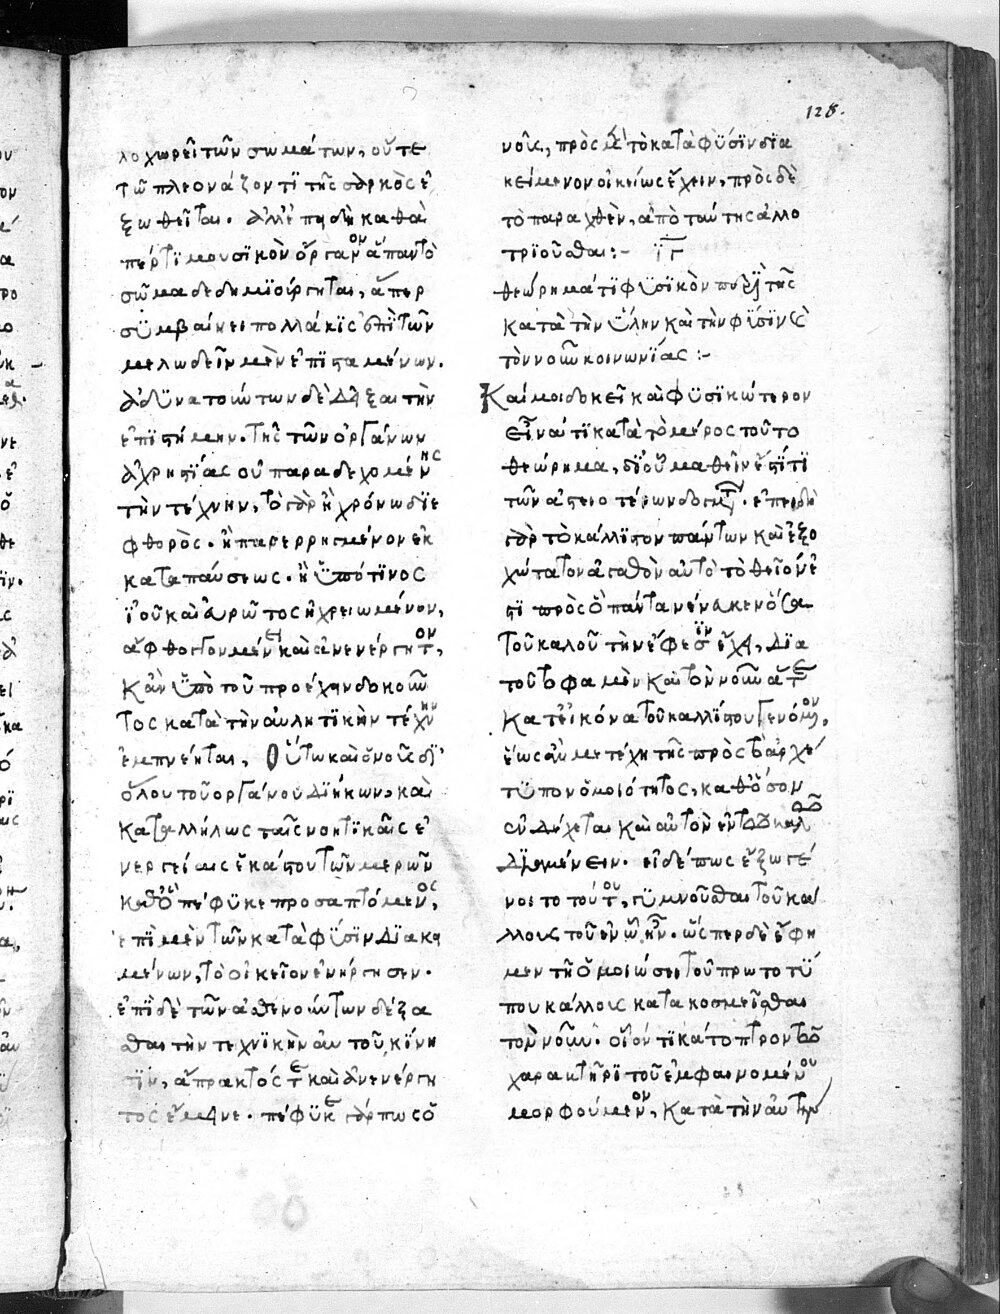 128.
λοχωρεῖ τῶν σωμάτων, οὔτε
τῷ πλεονάζοντι τῆς σαρκὸς ἐ
ξωθεῖται. ἀλλ' ἐπειδὴ καθά
περ τϊ μουσικὸν ὄργανον ἅπαν τὸ
σῶμα δεδημϊούργηται, ἅπερ
συμβαίνει πολλάκϊς ἐπὶ τῶν
μελωδεῖν μὲν ἐπϊσταμένων.
ἀδυνατούντων δὲ δεῖξαι τὴν
ἐπϊστήμην. τῆς τῶν ὀργάνων
ἀχρηστίας οὐ παραδεχομένης
τὴν τέχνην, τὸ γὰρ ἢ χρόνω διε
φθορὸς. ἢ παρερρηγμένον ἐκ
καταπτώσεως. ἢ ὑπό τϊνος
ϊοῦ καὶ εὐρῶτος ἠχρειωμένον,
ἄφθογγον μένει καὶ ἀνενέργητον,
κἂν ὑπὸ τοῦ προέχειν δοκοῦν
τος κατὰ τὴν αὐλητϊκὴν τέχνην
ἐμπνέηται, Οὕτω καὶ ὁ νοῦς δϊ'
ὅλου τοῦ ὀργάνου δϊήκων, καὶ
καταλλήλως ταῖς νοητϊκαῖς ἐ
νεργείαις ἑκάστου τῶν μερῶν
καθὸ πέφϋκε προσαπτόμενος,
ἐπὶ μὲν τῶν κατὰ φύσϊν δϊακει
μένων, τὸ οἰκεῖον ἐνήργησεν.
ἐπὶ δὲ τῶν ἀσθενούντων δέξα
σθαι τὴν τεχνϊκὴν αὐτοῦ κίνη
σϊν, ἄπρακτός τε καὶ ἀνενέργη
τος ἔμεινε. πέφϋκε γάρ πως ὁ
νοῦς, πρὸς μὲν τὸ κατὰ φύσϊν δϊα
κείμενον οἰκείως ἔχειν, πρὸς δὲ
τὸ παραχθὲν, ἀπὸ ταύτης ἀλλο
τρϊοῦσθαι:- ιγ
θεώρημά τϊ φυσϊκὸν περὶ τῆς
κατὰ τὴν ὕλην καὶ τὴν φύσϊν καὶ
τὸν νοῦν κοινωνίας:-
Καί μοι δοκεῖ καὶ φυσϊκώτερον
εἶναί τϊ κατὰ τὸ μέρος τοῦτο
θεώρημα, δϊ' οὗ μαθεῖν ἔστϊ τϊ
τῶν ἀστειοτέρων δογμάτων. ἐπειδὴ
γὰρ τὸ κάλλϊστον πάντων καὶ ἐξο
χώτατον ἀγαθὸν αὐτὸ τὸ θεῖόν ἐ
στϊ πρὸς ὃ πάντα νένευκεν ὅσα
τοῦ καλοῦ τὴν ἔφεσϊν ἔχει, δϊα
τοῦτο φαμὲν καὶ τὸν νοῦν ἅτε
κατ' εἰκόνα τοῦ καλλίστου γενόμενον,
ἕως ἂν μετέχῃ τῆς πρὸς τὸ ἀρχέ
τϋπον ὁμοιότητος, καθόσον
ἐνδέχεται καὶ αὐτὸν ἐν τῷ καλῷ
δϊαμένειν. εἰ δέ πως ἔξω γέ
νοιτο τούτου, γυμνοῦσθαι τοῦ κά
λλους τοῦ ἐν ᾧ ἦν. ὥσπερ δὲ ἔφη
μεν τῆ ὁμοιώσει τοῦ πρωτοτύ
που κάλλους κατακοσμεῖσθαι
τὸν νοῦν. οἷόν τϊ κάτοπτρον τῷ
χαρακτῆρϊ τοῦ ἐμφαινομένου
μορφούμενον, κατὰ τὴν αὐτὴν